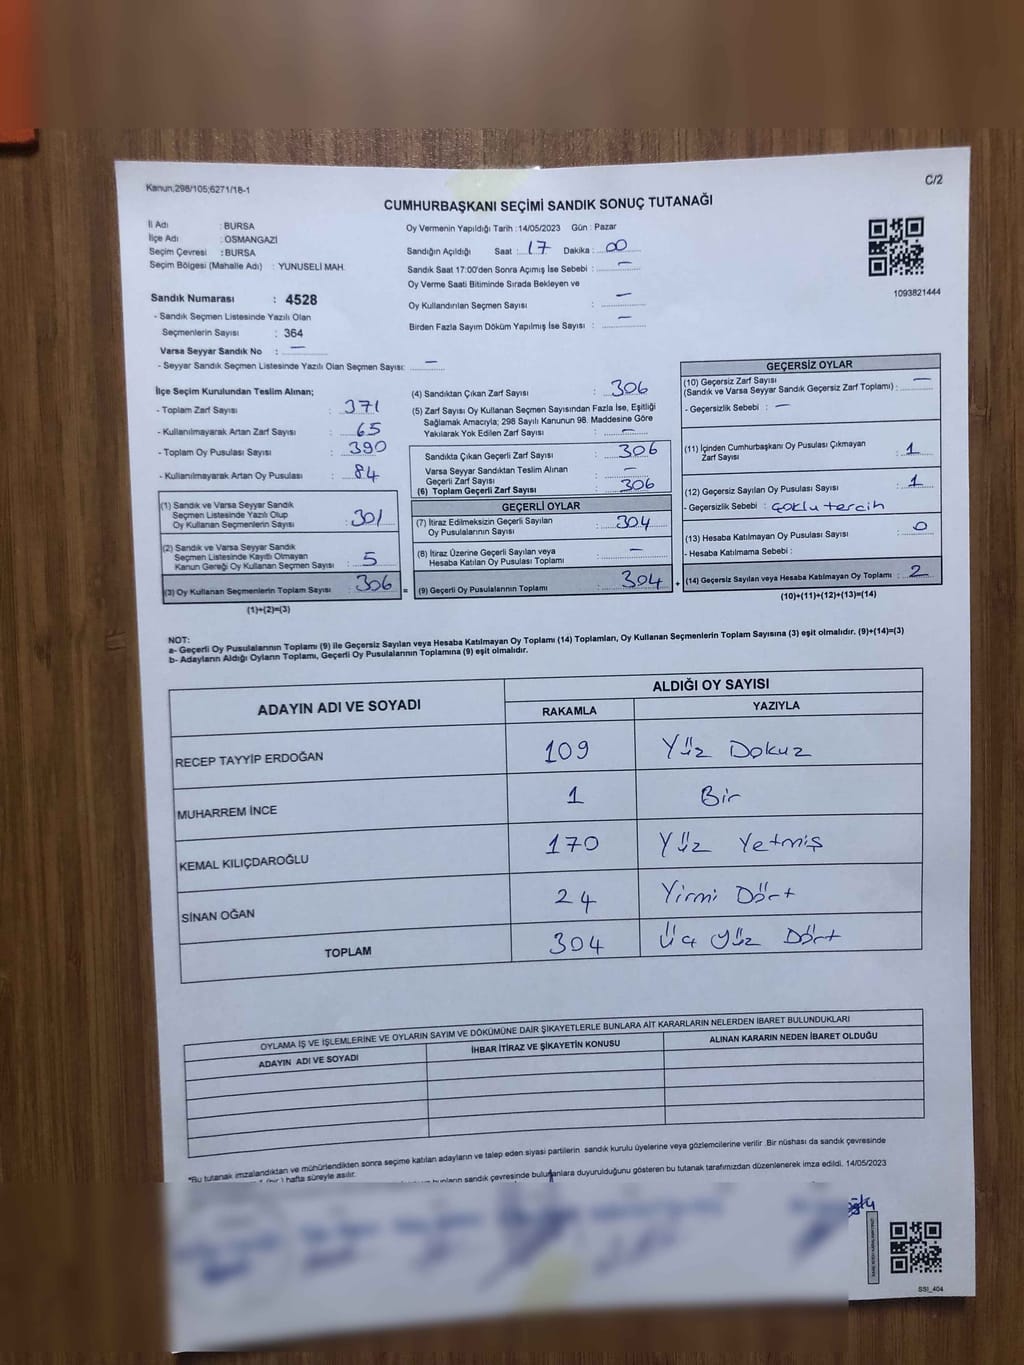 Kanun;298/105;6271/18-1
C/2
CUMHURBAŞKANI SEÇİMİ SANDIK SONUÇ TUTANAĞI
İl Adı : BURSA
İlçe Adı : OSMANGAZİ
Seçim Çevresi : BURSA
Seçim Bölgesi (Mahalle Adı) : YUNUSELİ MAH.
Sandık Numarası : 4528
- Sandık Seçmen Listesinde Yazılı Olan
Seçmenlerin Sayısı : 364
Varsa Seyyar Sandık No : —
- Seyyar Sandık Seçmen Listesinde Yazılı Olan Seçmen Sayısı: —
Oy Vermenin Yapıldığı Tarih : 14/05/2023 Gün : Pazar
Sandığın Açıldığı Saat : 17 Dakika : 00
Sandık Saat 17:00'den Sonra Açımış İse Sebebi : —
Oy Verme Saati Bitiminde Sırada Bekleyen ve
Oy Kullandırılan Seçmen Sayısı : —
Birden Fazla Sayım Döküm Yapılmış İse Sayısı : —
1093821444
İlçe Seçim Kurulundan Teslim Alınan;
- Toplam Zarf Sayısı : 371
- Kullanılmayarak Artan Zarf Sayısı : 65
- Toplam Oy Pusulası Sayısı : 390
- Kullanılmayarak Artan Oy Pusulası : 84
(1) Sandık ve Varsa Seyyar Sandık
Seçmen Listesinde Yazılı Olup
Oy Kullanan Seçmenlerin Sayısı : 301
(2) Sandık ve Varsa Seyyar Sandık
Seçmen Listesinde Kayıtlı Olmayan
Kanun Gereği Oy Kullanan Seçmen Sayısı : 5
(3) Oy Kullanan Seçmenlerin Toplam Sayısı : 306
(1)+(2)=(3)
(4) Sandıktan Çıkan Zarf Sayısı : 306
(5) Zarf Sayısı Oy Kullanan Seçmen Sayısından Fazla İse, Eşitliği
Sağlamak Amacıyla; 298 Sayılı Kanunun 98. Maddesine Göre
Yakılarak Yok Edilen Zarf Sayısı : —
Sandıkta Çıkan Geçerli Zarf Sayısı : 306
Varsa Seyyar Sandıktan Teslim Alınan
Geçerli Zarf Sayısı : —
(6) Toplam Geçerli Zarf Sayısı : 306
GEÇERLİ OYLAR
(7) İtiraz Edilmeksizin Geçerli Sayılan
Oy Pusulalarının Sayısı : 304
(8) İtiraz Üzerine Geçerli Sayılan veya
Hesaba Katılan Oy Pusulası Toplamı : —
= (9) Geçerli Oy Pusulalarının Toplamı : 304 +
GEÇERSİZ OYLAR
(10) Geçersiz Zarf Sayısı
(Sandık ve Varsa Seyyar Sandık Geçersiz Zarf Toplamı) : —
- Geçersizlik Sebebi : —
(11) İçinden Cumhurbaşkanı Oy Pusulası Çıkmayan
Zarf Sayısı : 1
(12) Geçersiz Sayılan Oy Pusulası Sayısı : 1
- Geçersizlik Sebebi : çoklu tercih
(13) Hesaba Katılmayan Oy Pusulası Sayısı : 0
- Hesaba Katılmama Sebebi :
(14) Geçersiz Sayılan veya Hesaba Katılmayan Oy Toplamı : 2
(10)+(11)+(12)+(13)=(14)
NOT:
a- Geçerli Oy Pusulalarının Toplamı (9) ile Geçersiz Sayılan veya Hesaba Katılmayan Oy Toplamı (14) Toplamları, Oy Kullanan Seçmenlerin Toplam Sayısına (3) eşit olmalıdır. (9)+(14)=(3)
b- Adayların Aldığı Oyların Toplamı, Geçerli Oy Pusulalarının Toplamına (9) eşit olmalıdır.
ADAYIN ADI VE SOYADI
ALDIĞI OY SAYISI
RAKAMLA YAZIYLA
RECEP TAYYİP ERDOĞAN 109 Yüz Dokuz
MUHARREM İNCE 1 Bir
KEMAL KILIÇDAROĞLU 170 Yüz Yetmiş
SİNAN OĞAN 24 Yirmi Dört
TOPLAM 304 Üç yüz Dört
OYLAMA İŞ VE İŞLEMLERİNE VE OYLARIN SAYIM VE DÖKÜMÜNE DAİR ŞİKAYETLERLE BUNLARA AİT KARARLARIN NELERDEN İBARET BULUNDUKLARI
ADAYIN ADI VE SOYADI İHBAR İTİRAZ VE ŞİKAYETİN KONUSU ALINAN KARARIN NEDEN İBARET OLDUĞU
*Bu tutanak imzalandıktan ve mühürlendikten sonra seçime katılan adayların ve talep eden siyasi partilerin sandık kurulu üyelerine veya gözlemcilerine verilir .Bir nüshası da sandık çevresinde
(bir ) hafta süreyle asılır.
sandık çevresinde bulunanlara duyurulduğunu gösteren bu tutanak tarafımızdan düzenlenerek imza edildi. 14/05/2023
SSI_404